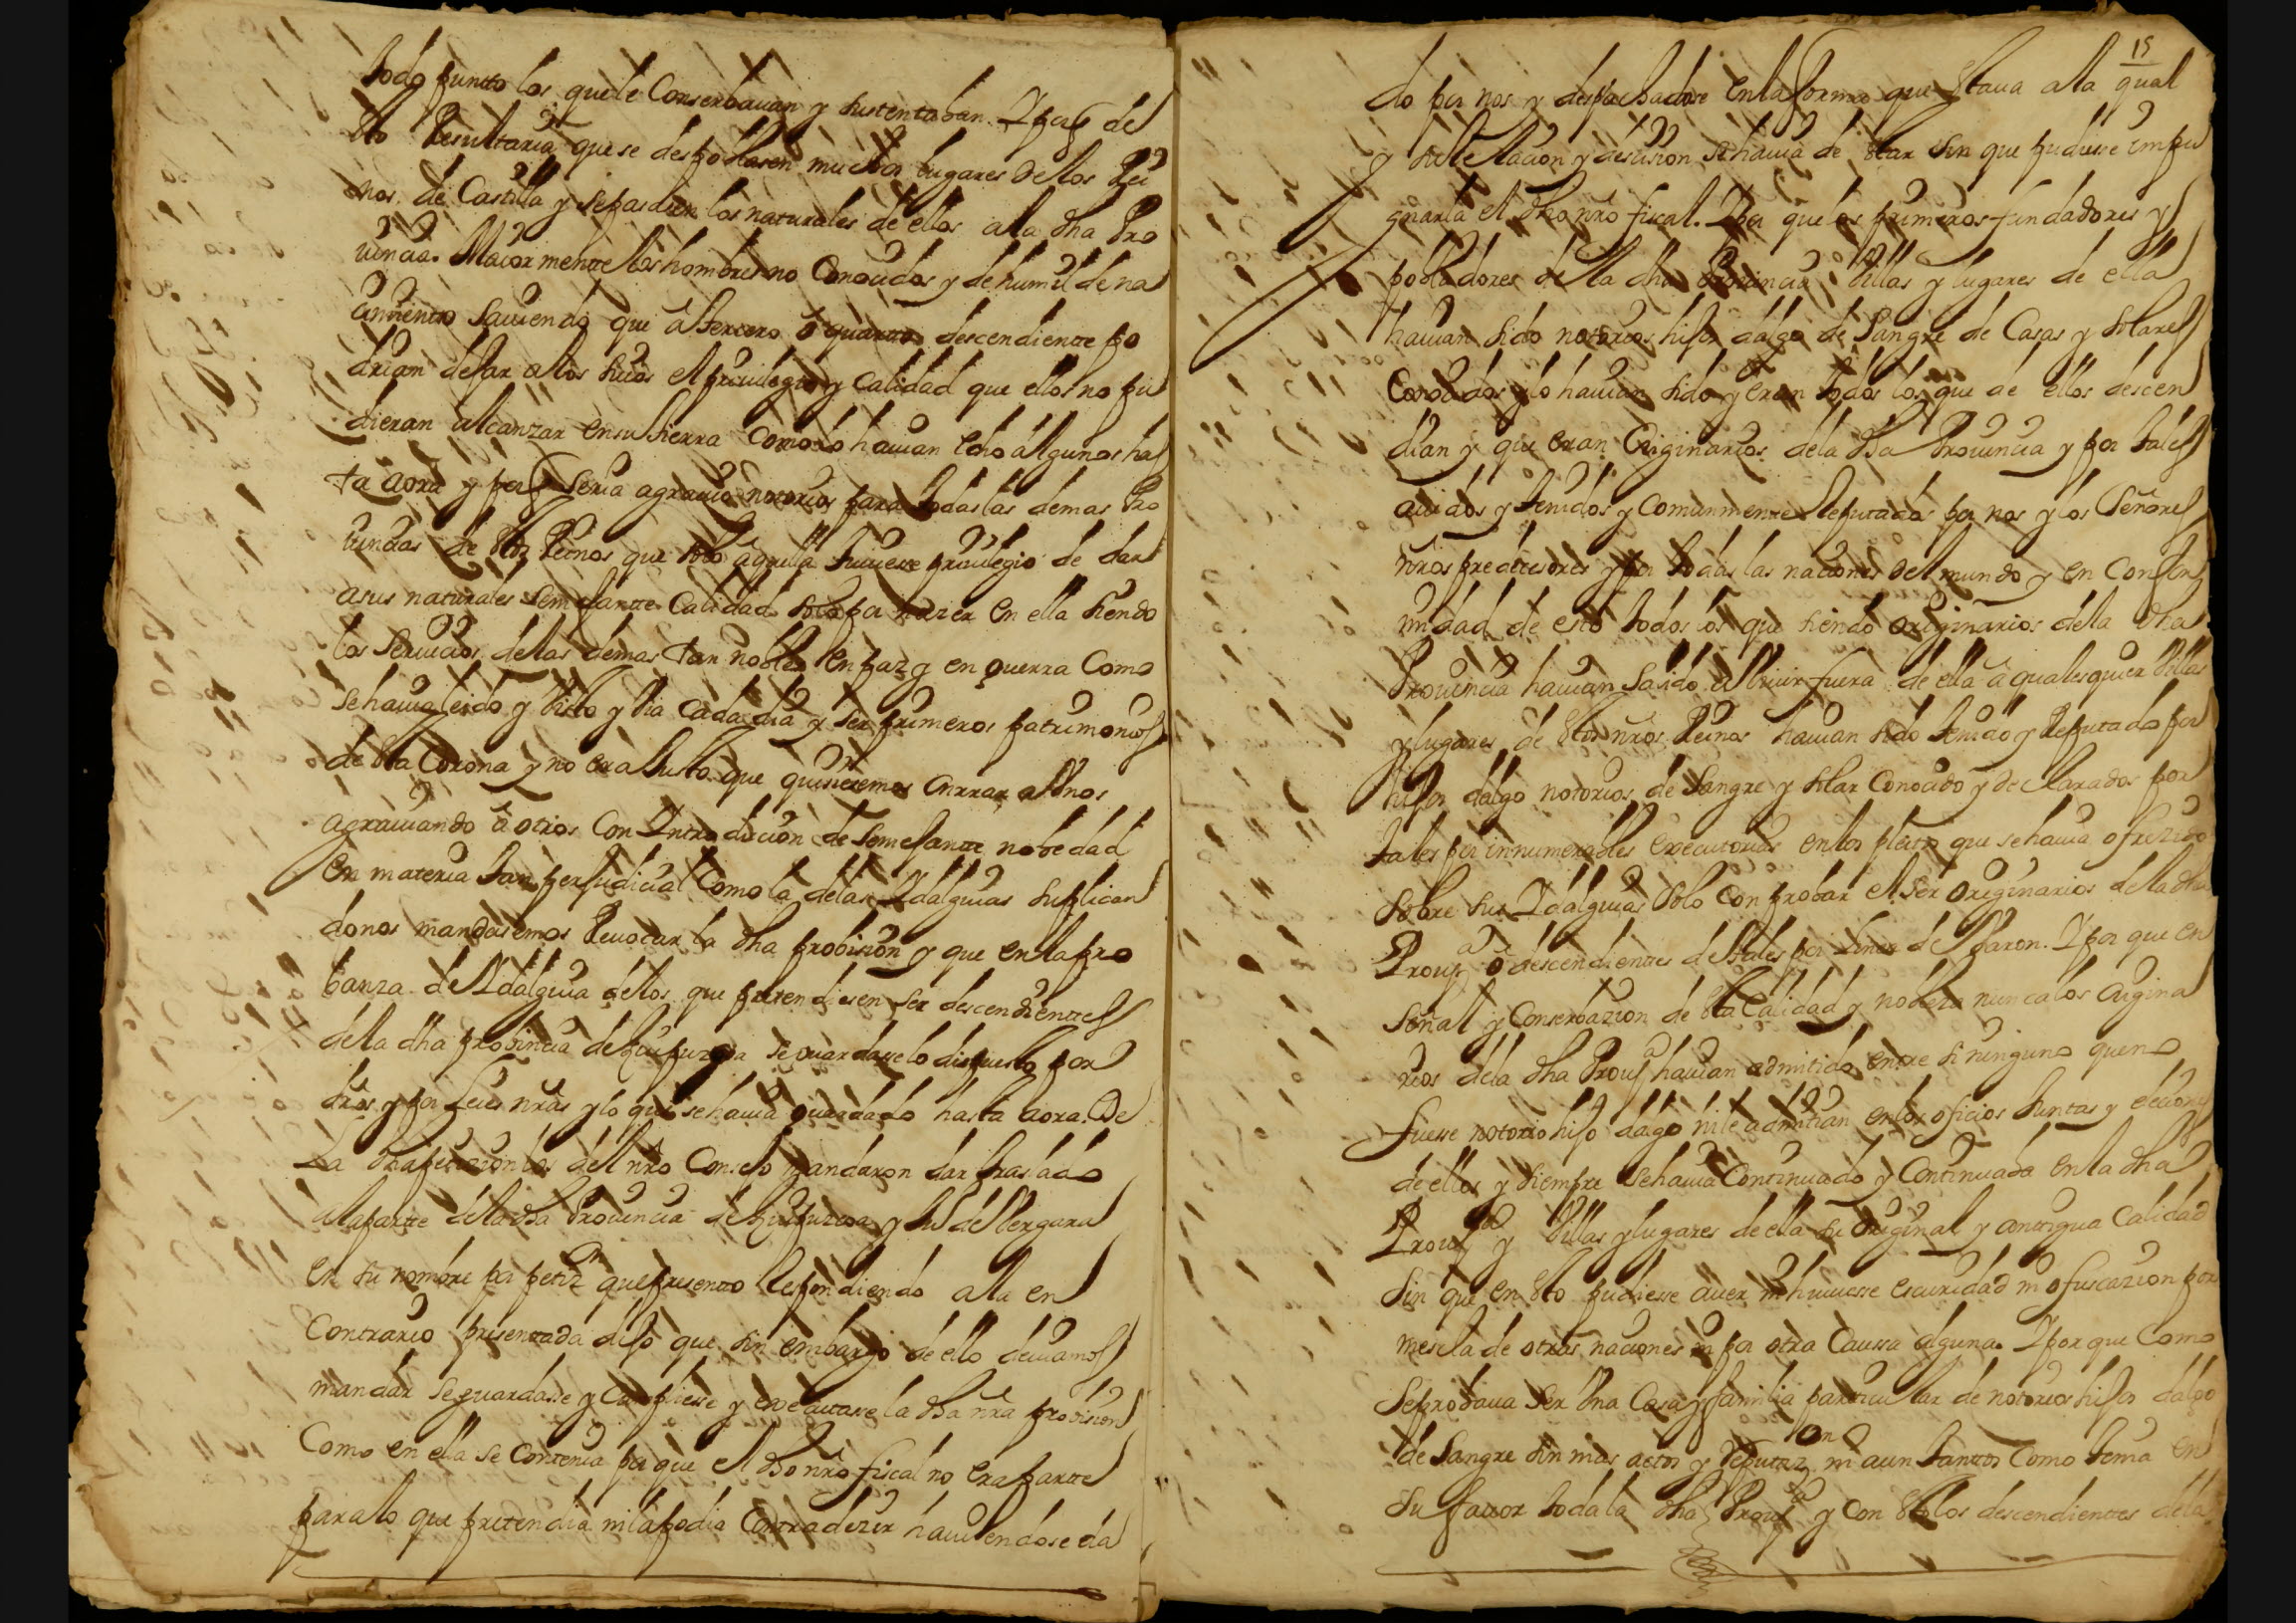 todo puntto los que le Conserbauan y sustentaban. Y porq de
esto Resultaria que se despoblasen muchos lugares de los Rei
nos de Castilla y se pasasen los naturales de ellos a la dha Pro
uincia. Maiormente los hombres no Conocidos y de humilde na
cimiento sauiendo que â tercero ô quarto descendiente po
drian dejar a los suios el priuilegio y Calidad que ellos no pu
dieran alcanzar en su tierra como lo hauian echo algunos has
ta aora y porq seria agrauio notorio para todas las demas Pro
uincias de estos Reinos que solo aquella tuuiese priuilegio de dar
a sus naturales semejante Calidad solo por nazer en ella siendo
los seruicios de las demas tan nobles en paz y en guerra Como
se hauia leido y visto y via cada dia y ser primeros patrimonios
de esta Corona y no era Justo que quisieremos onrrar a Vnos
agrauiando â otros Con Introducion de semejante nobedad
en materia tan perjudicial Como la de las Idalguias suplican
donos mandasemos Reuocar la dha probision y que en la pro
banza de Idalguia de los que pretendiesen ser descendientes
de la dha probincia de Guipuzcoa se guardase lo dispuesto por
dros y por Leies nras y lo que se hauia guardado hasta aora. De
La dha peticion los del nro Consejo mandaron dar traslado
a la parte de la dha Prouincia de Guipuzcoa y Juo de Vergara
en su nombre por petiz on que presento Respondiendo a la en
Contrario presentada dijo que sin embargo de ello deuiamos
mandar se guardasse y Cumpliesse y executase la dha nra probision
Como en ella se Contenia por que el dho nro fiscal no era parte
para lo que pretendia ni la podia Contradezir hauiendose da
15
do por nos y despachadose en la forma que estaua a la qual
y su Relacion y decision se hauia de estar sin que pudiesse impu
gnarla el dho nro fiscal. Y por que los primeros fundadores y
pobladores de la dha Prouincia Villas y lugares de ella
hauian sido notorios hijos dalgo de sangre de Casas y solares
Conocidos y lo hauian sido y eran todos los que de ellos descen
dian y que eran Originarios de la dha Prouincia y por tales
auidos y tenidos y Comunmente Reputados por nos y los Señores
nros predecesores y por todas las naciones del mundo y en Confor
midad de esto todos los que siendo originarios de la dha
Prouincia hauian salido a Viuir fuera de ella â qualesquier Villas
y lugares de estos nros Reinos hauian sido tenido y Reputado por
hijos dalgo notorios de Sangre y solar Conocido y declarados por
tales por innumerables executorias en los pleitos que se hauia ofrezido
sobre sus Idalguias Solo con probar el ser Originarios de la dha
Prouᵃ ô descendientes de tales por Linea de Varon. Y por que en
señal y Conserbazion de esta Calidad y nobleza nunca los Origina
rios de la dha Prouᵃ hauian admitido entre si ninguno que no
fuesse notorio hijo dalgo ni le admitian en los oficios Juntas y eleciones
de ellos y siempre se hauia Continuado y Continuada en la dha
Prouᵃ y Villas y lugares de ella su Original y antigua Calidad
sin que en esto pudiesse auer ni huuiesse escuridad ni ofuscazion por
mescla de otras naciones ni por otra Caussa alguna. Y por que Como
se probaua ser Vna Casa y familia particular de notorios hijos dalgo
de Sangre sin mas actos y Reputaz on ni aun tantos Como tenia en
su fauor toda la dha Prouᵃ y con esto los descendientes de la